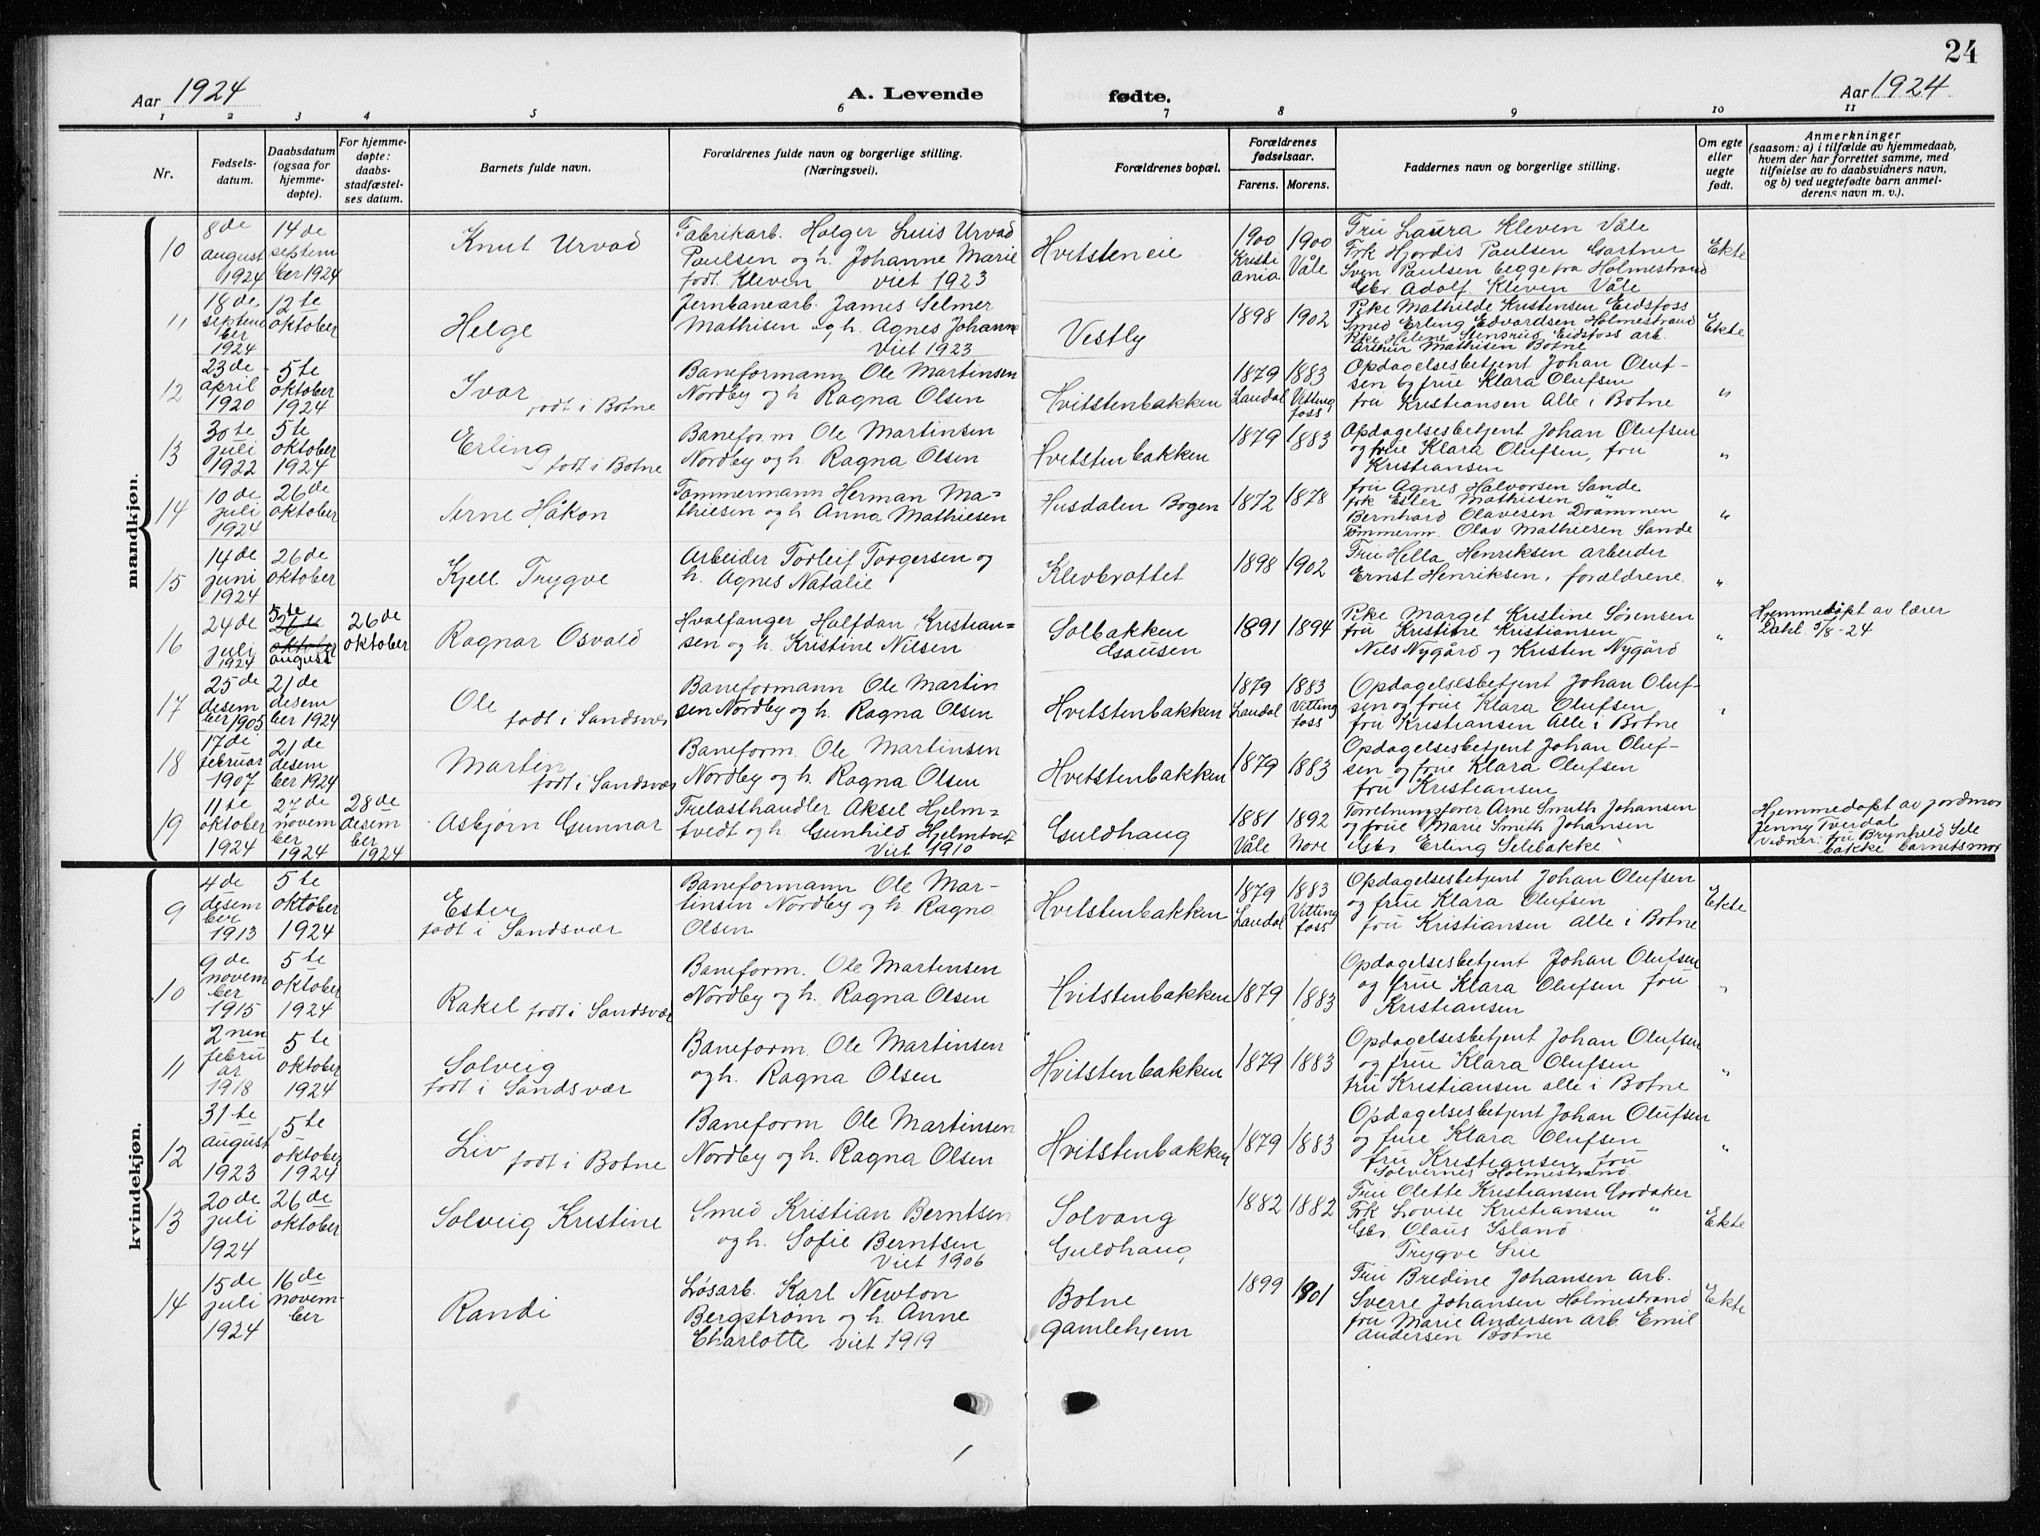 24
Aar 1924
A. Levende
fødte.
Aar 1924
1 2 3 4 5 6 7 8 9 10 11
Nr.
Fødsels-
datum.
Daabsdatum
(ogsaa for
hjemme-
døpte).
For hjemme-
døpte:
daabs-
stadfæstel-
ses datum.
Barnets fulde navn.
Forældrenes fulde navn og borgerlige stilling.
(Næringsvei).
Forældrenes bopæl.
Forældrenes
fødselsaar.
Farens. Morens.
Faddernes navn og borgerlige stilling.
Om egte
eller
uegte
født.
Anmerkninger
(saasom: a) i tilfælde av hjemmedaab,
hvem der har forrettet samme, med
tilføielse av to daabsvidners navn,
og b) ved uegtefødte barn anmel-
derens navn m. v.).
mandkjøn.
10
8de
august
1924
14de
septem
ber 1924
Knut Urvad
Fabrikarb. Holger Luis Urvad
Paulsen og h. Johanne Marie
født Kleven viet 1923
Hvitsteneie
1900
Kristi
ania
1900
Våle
Fru Laura Kleven Våle
Frk Hjordis Paulsen Gartner
Sven Paulsen begge fra Holmestrand
Gbr. Adolf Kleven Våle
Ekte
11
18de
septem
ber
1924
12te
oktober
Helge
Jernbanearb. James Selmer
Mathisen og h. Agnes Johanne
Viet 1923
Vestly
1898
1902
Pike Mathilde Kristensen Eidsfoss
Smed Erling Edvardsen Holmestrand
Pike Helene Stensrud Eidsfoss arb.
Arthur Mathisen Botne
Ekte
12
23de
april
1920
5te
oktober
1924
Ivar
født i Botne
Baneformann Ole Martinsen
Nordby og h. Ragna Olsen
Hvitstenbakken
1879
Laudal
1883
Vitting
foss
Opdagelsesbetjent Johan Oluf-
sen og frue Klara Olufsen
fru Kristiansen Alle i Botne
"
13
30te
juli
1922
5te
oktober
1924
Erling
født i Botne
Baneform Ole Martinsen
Nordby og h. Ragna Olsen
Hvitstenbakken
1879
1883
Opdagelsesbetjent Johan Olufsen
og frue Klara Olufsen, fru
Kristiansen
"
14
10de
juli
1924
26de
oktober
Arne Håkon
Tømmermann Herman Ma=
thiesen og h Anna Mathiesen
Husdalen Bogen
1872
1878
fru Agnes Halvorsen Sande
frk Ester Mathiesen "
Bernhard Olavesen Drammen
Tømmerm. Olav Mathiesen Sande
"
15
14de
juni
1924
26de
oktober
Kjell Trygve
Arbeider Torleif Torgersen og
h. Agnes Natalie
Klevbrottet
1898
1902
Fru Hella Henriksen arbeider
Ernst Henriksen, forældrene.
"
16
24de
juli
1924
5te
26de
oktober
august
26de
oktober
Ragnar Osvald
Hvalfanger Halfdan Kristian=
sen og h. Kristine Nilsen
Solbakken
Esausen
1891
1894
Pike Marget Kristine Sørensen
fru Kristine Kristiansen
Nils Nygård og Kristen Nygård
"
Hjemmedøpt av lærer
5/8-24
17
25de
desem
ber 1905
21de
desem
ber 1924
Ole
født i Sandsvær
Baneformann Ole Martin
sen Nordby og h. Ragna Olsen
Hvitstenbakken
1879
Laudal
1883
Vitting
foss
Opdagelsesbetjent Johan Oluf-
sen og frue Klara Olufsen
fru Kristiansen Alle i Botne
"
18
17de
februar
1907
21de
desem
ber 1924
Martin
født i Sandsvær
Baneform. Ole Martinsen
Nordby og h. Ragna Olsen
Hvitstenbakken
1879
1883
Opdagelsesbetjent Johan Oluf-
sen og frue Klara Olufsen
fru Kristiansen
19
11te
oktober
1924
27de
novem
ber
1924
28de
desem
ber
1924
Asbjørn Gunnar
Trelasthandler Aksel Hjelm=
tvedt og h. Gunhild Hjelmtvedt
Viet 1910
Guldhaug
1881
Våle
1892
Nore
Forretningsfører Arne Smith Johansen
og frue Marie Smith Johansen
Gbr. Erling Selebakke
Hjemmedøpt av jordmor
Jenny Tverdal
vidner: fru Brynhild Sele
bakke barnets mor
kvindekjøn.
9
4de
desem
ber
1913
5te
oktober
1924
Ester
født i Sandsvær
Baneformann Ole Mar-
tinsen Nordby og h. Ragna
Olsen
Hvitstenbakken
1879
Laudal
1883
Vitting
foss
Opdagelsesbetjent Johan Olufsen
og frue Klara Olufsen
fru Kristiansen Alle i Botne
Ekte
10
9de
novem
ber
1915
5te
oktober
1924
Rakel født i Sandsvær
Baneform. Ole Martinsen
Nordby og h. Ragna Olsen
Hvitstenbakken
1879
1883
Opdagelsesbetjent Johan Olufsen
og frue Klara Olufsen fru
Kristiansen
"
11
2nen
febru
ar
1918
5te
oktober
1924
Solveig
født i Sandsvær
Baneform. Ole Martinsen
og h. Ragna Olsen
Hvitstenbakken
1879
1883
Opdagelsesbetjent Johan Olufsen
og frue Klara Olufsen
fru Kristiansen alle i Botne
"
12
31te
august
1923
5te
oktober
1924
Liv
født i Botne
Baneform Ole Martinsen
Nordby og h. Ragna Olsen
Hvitstenbakken
1879
1883
Opdagelsesbetjent Johan Olufsen
og frue Klara Olufsen
fru Kristiansen fru
Solvernes Holmestrand
"
13
20de
juli
1924
26de
oktober
Solveig Kristine
Smed Kristian Berntsen
og h. Sofie Berntsen
Viet 1906
Solvang
Guldhaug
1882
1882
Fru Olette Kristiansen Gordaker
Frk Lovise Kristiansen "
Gbr. Olaus Island
Trygve Lie
Ekte
14
15de
juli
1924
16de
novem-
ber
Randi
Løsarb. Karl Newton
Bergstrøm og h. Anne
Charlotte viet 1919
Botne
gamlehjem
1899
1901
Fru Bredine Johansen arb.
Sverre Johansen Holmestrand
fru Marie Andersen arb Emil
Andersen Botne
Ekte